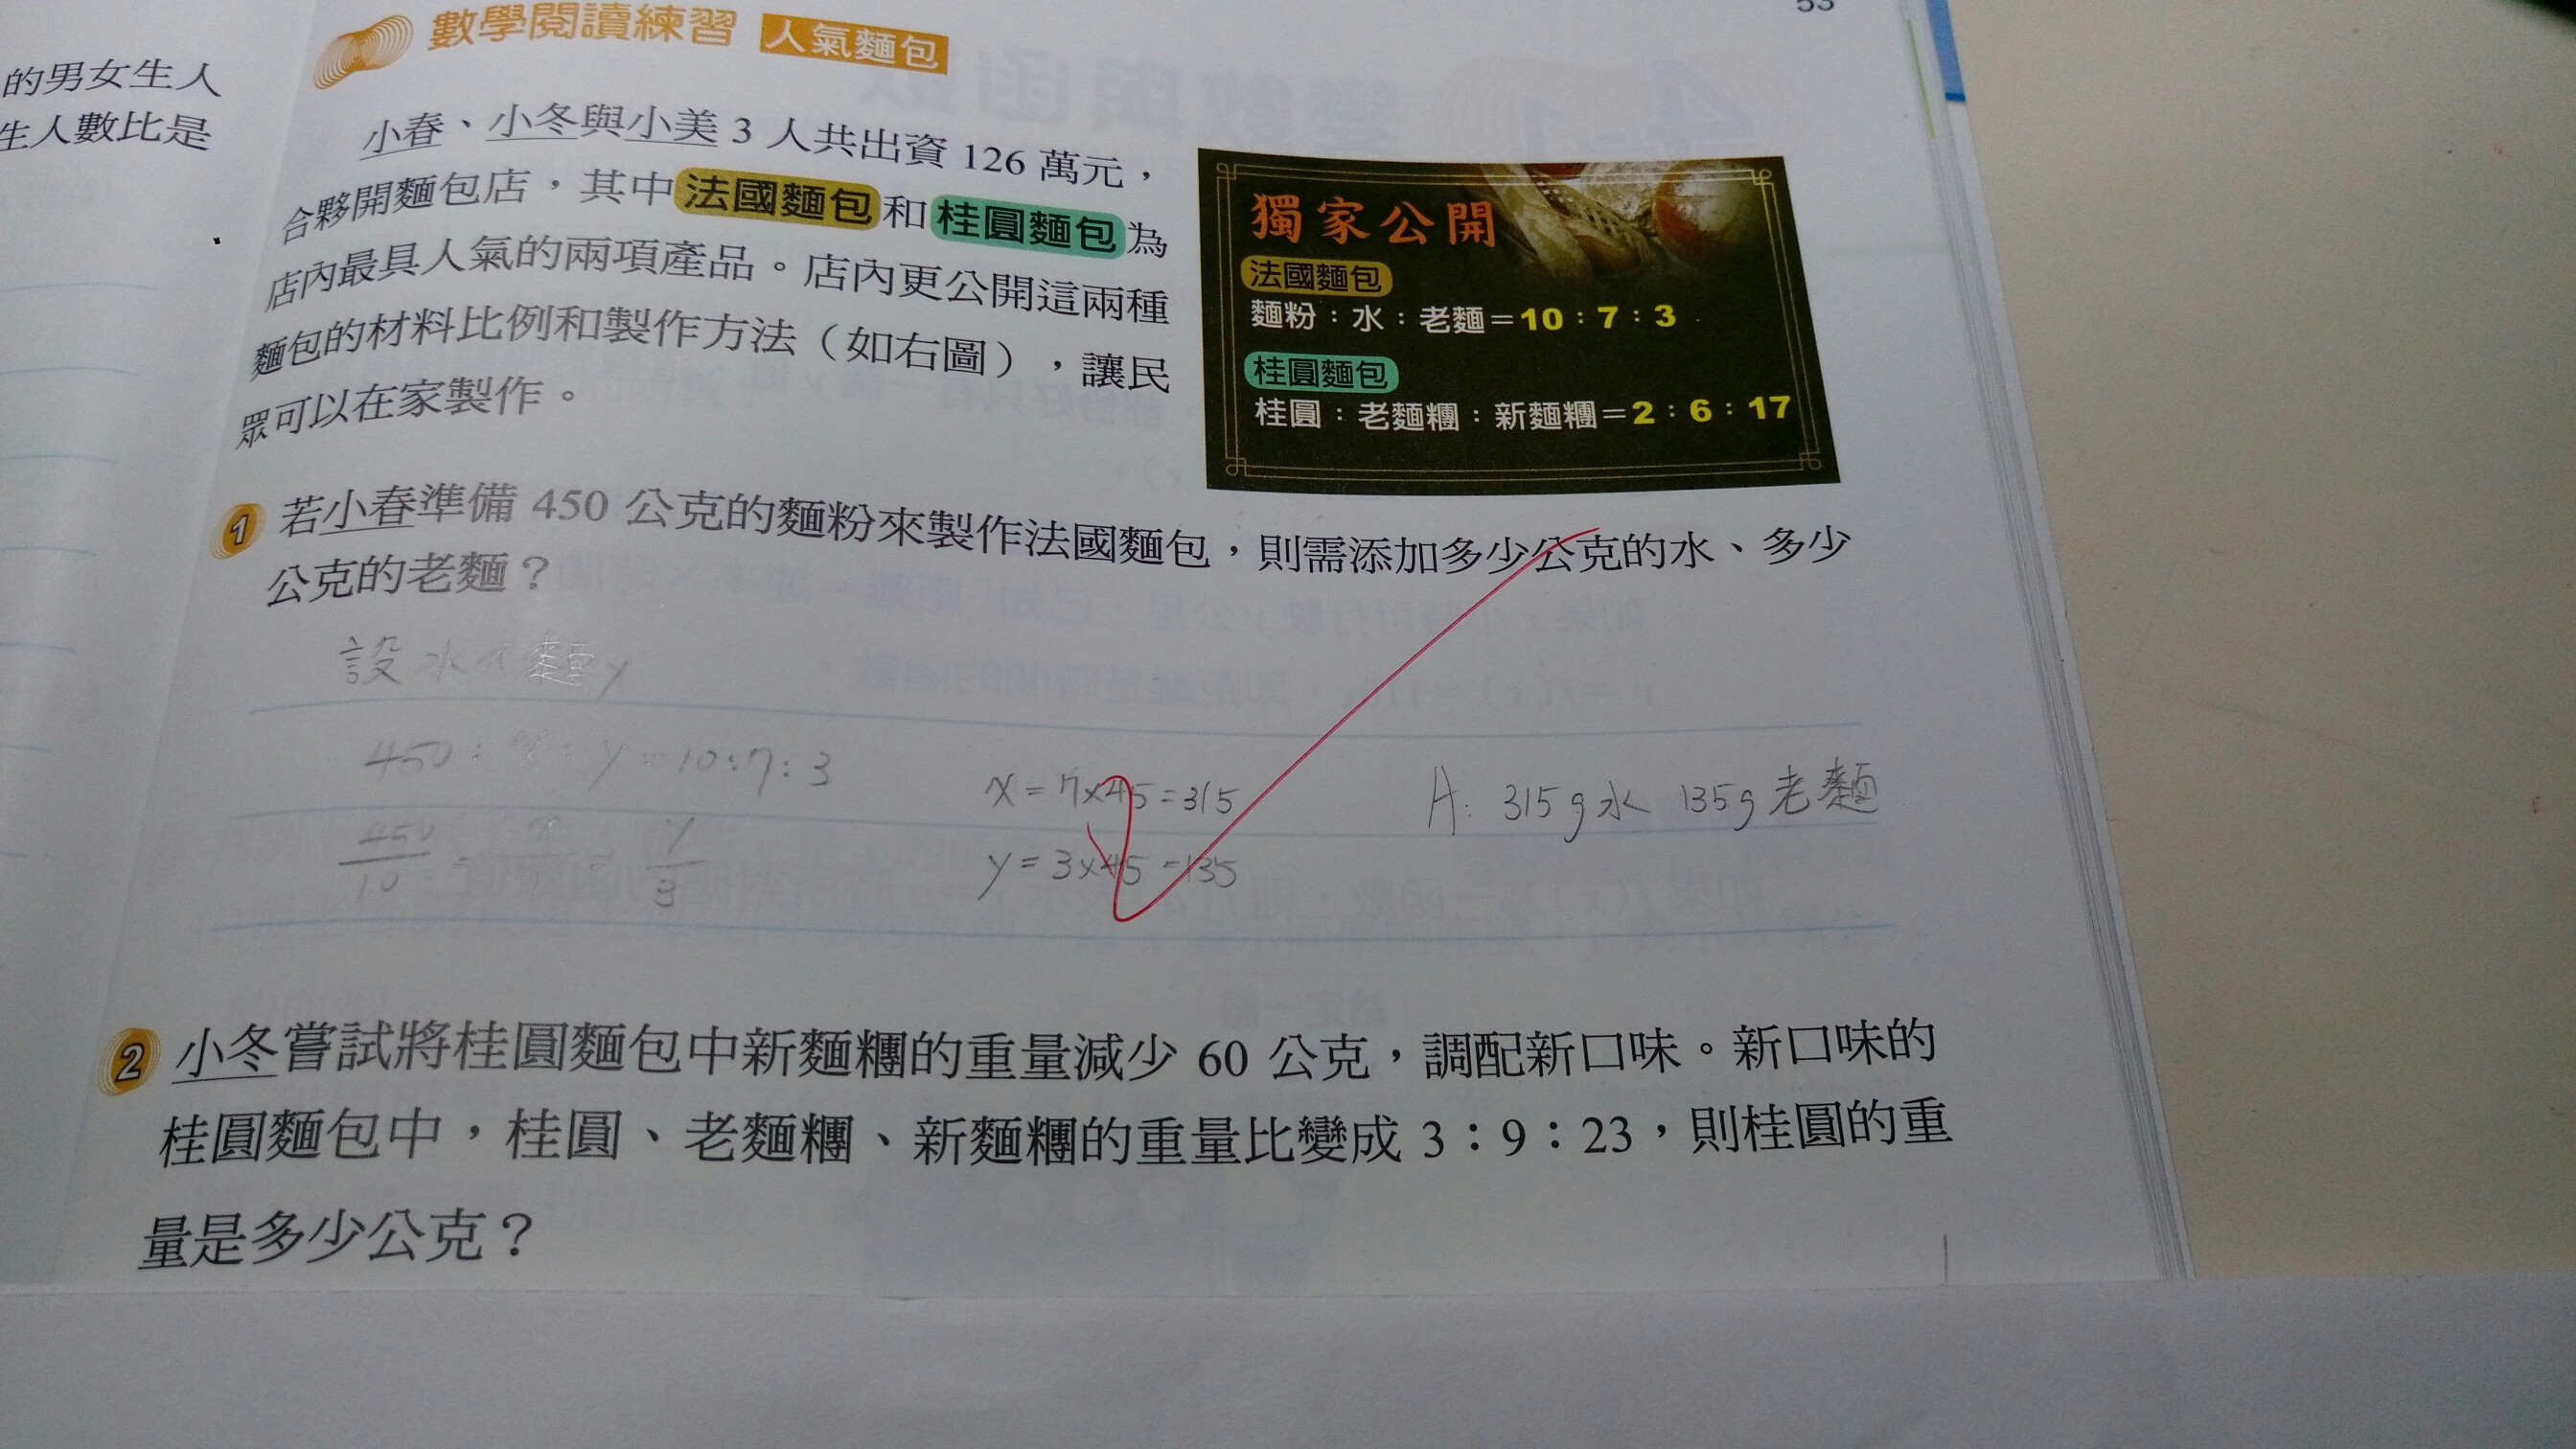 53
數學閱讀練習 人氣麵包
的男女生人
生人數比是
小春、小冬與小美 3 人共出資 126 萬元，
合夥開麵包店，其中法國麵包和桂圓麵包為
店內最具人氣的兩項產品。店內更公開這兩種
麵包的材料比例和製作方法（如右圖），讓民
眾可以在家製作。
獨家公開
法國麵包
麵粉：水：老麵＝10：7：3
桂圓麵包
桂圓：老麵糰：新麵糰＝2：6：17
1 若小春準備 450 公克的麵粉來製作法國麵包，則需添加多少公克的水、多少
公克的老麵？
設水x麵y
450：x：y=10:7:3
x=7x45=315
A: 315g水 135g老麵
450/10 = x/7 = y/3
y=3x45=135
2 小冬嘗試將桂圓麵包中新麵糰的重量減少 60 公克，調配新口味。新口味的
桂圓麵包中，桂圓、老麵糰、新麵糰的重量比變成 3：9：23，則桂圓的重
量是多少公克？